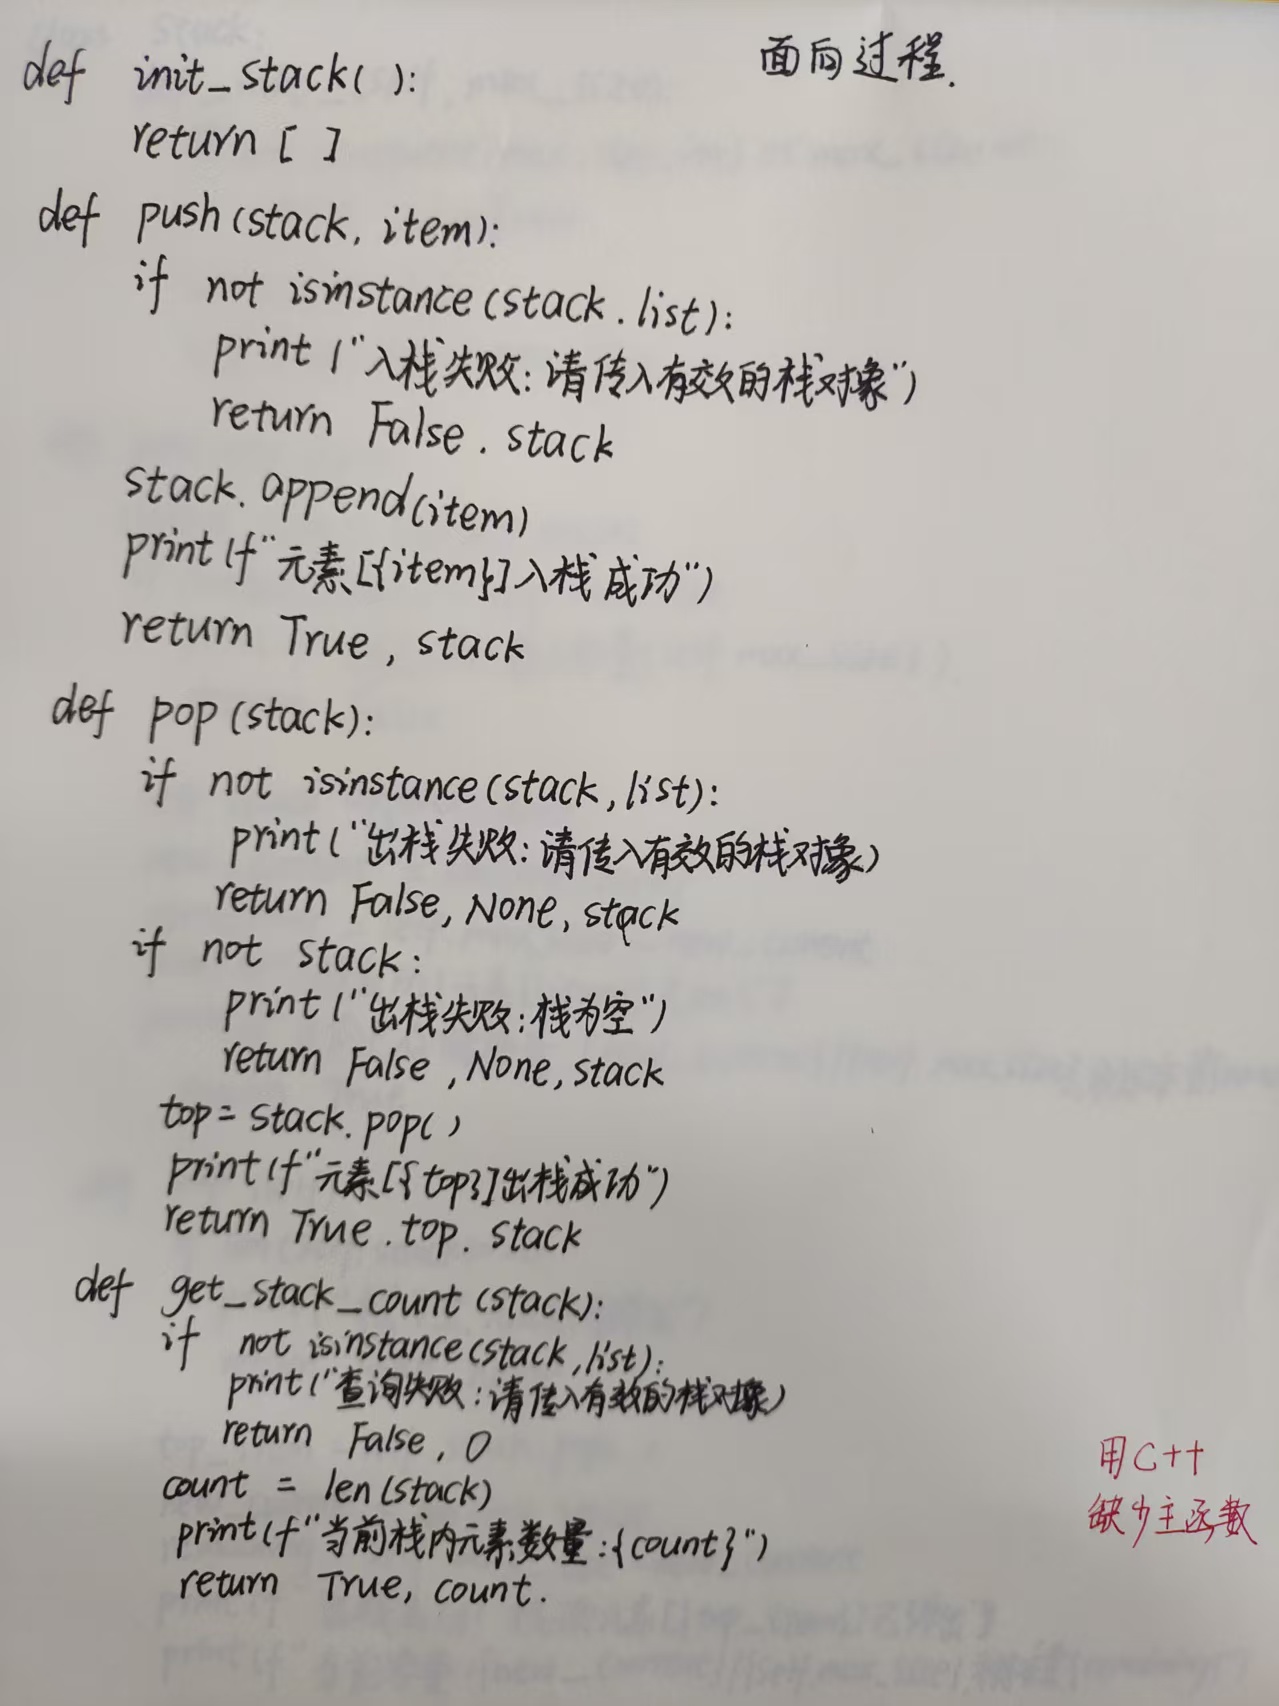 面向过程.
def init_stack():
return [ ]
def push(stack, item):
if not isinstance(stack.list):
print("入栈失败:请传入有效的栈对象")
return False.stack
stack.append(item)
print(f"元素[{item}]入栈成功")
return True, stack
def pop(stack):
if not isinstance(stack, list):
print("出栈失败:请传入有效的栈对象)
return False, None, stack
if not stack:
print("出栈失败:栈为空")
return False, None, stack
top = stack.pop()
print(f"元素[{top}]出栈成功")
return True.top.stack
def get_stack_count(stack):
if not isinstance(stack, list):
print("查询失败:请传入有效的栈对象)
return False, 0
count = len(stack)
print(f"当前栈内元素数量:{count}")
return True, count.
用C++
缺少主函数